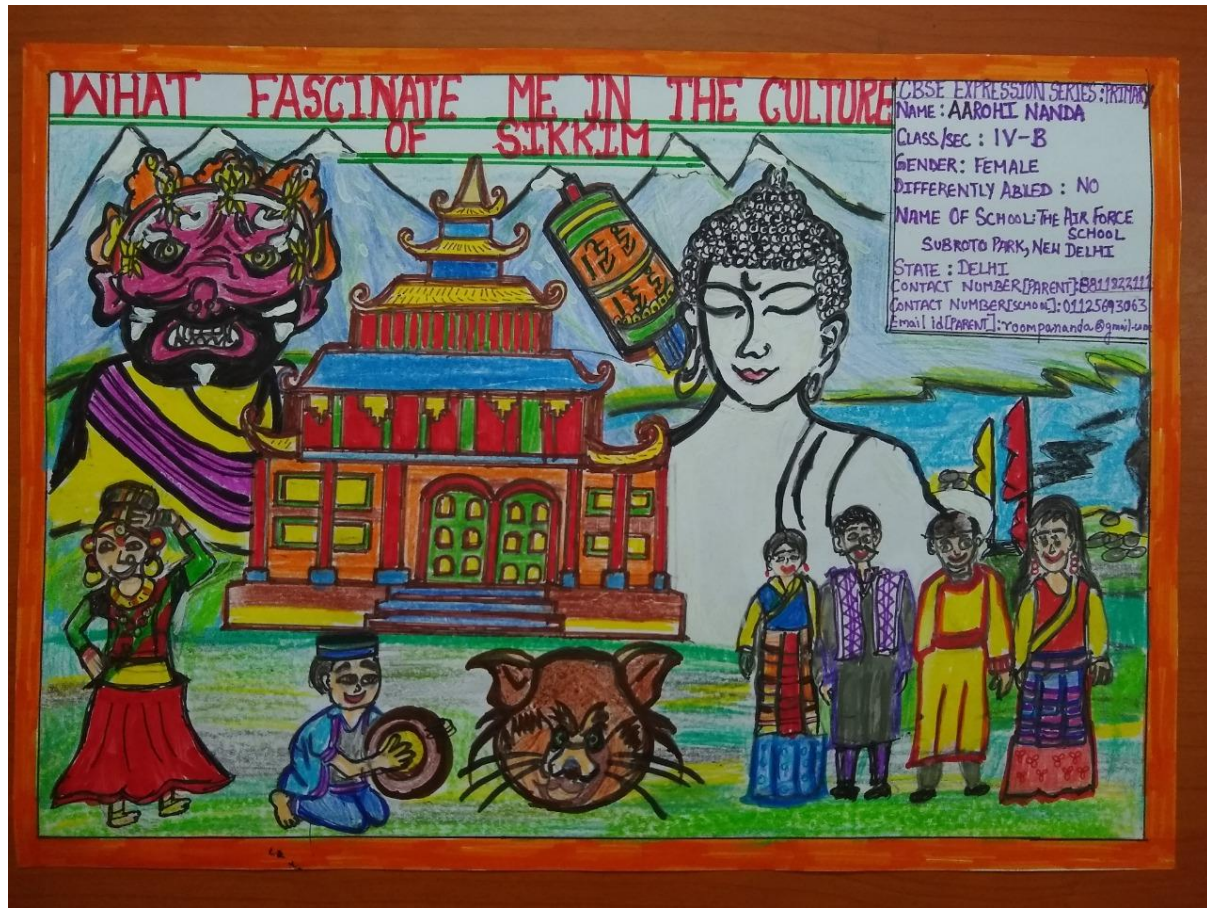 WHAT FASCINATE ME IN THE CULTURE
OF SIKKIM
CBSE EXPRESSION SERIES:PRIMARY
NAME: AAROHI NANDA
CLASS/SEC: IV-B
GENDER: FEMALE
DIFFERENTLY ABLED: NO
NAME OF SCHOOL:THE AIR FORCE
SCHOOL
SUBROTO PARK, NEW DELHI
STATE: DELHI
CONTACT NUMBER[PARENT]:
CONTACT NUMBER[SCHOOL]: 01125693063
Email id[PARENT]:roompananda@gmail.com